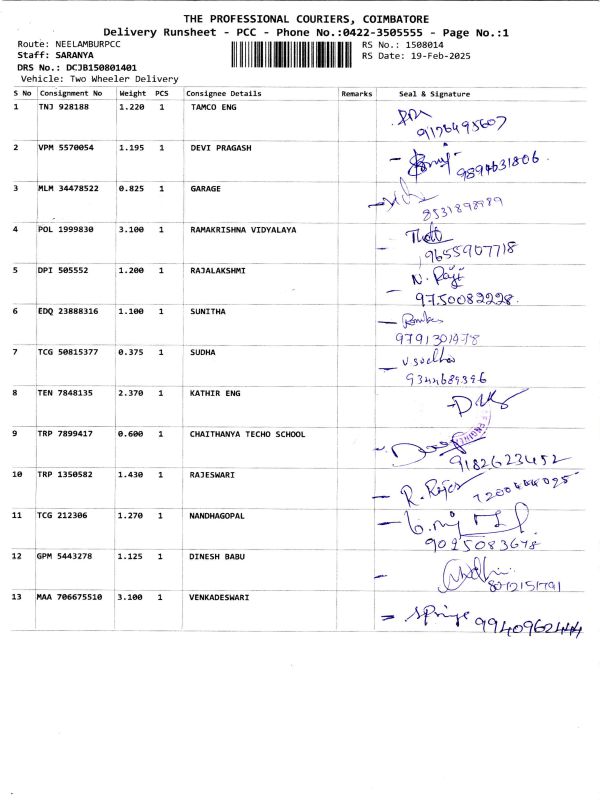 THE PROFESSIONAL COURIERS, COIMBATORE
Delivery Runsheet - PCC - Phone No.:0422-3505555 - Page No.:1
Route: NEELAMBURPCC RS No.: 1508014
Staff: SARANYA RS Date: 19-Feb-2025
DRS No.: DCJB150801401
Vehicle: Two Wheeler Delivery
S No Consignment No Weight PCS Consignee Details Remarks Seal & Signature
1 TNJ 928188 1.220 1 TAMCO ENG
9176495607
2 VPM 5570054 1.195 1 DEVI PRAGASH
9894631806.
3 MLM 34478522 0.825 1 GARAGE
8531898989
4 POL 1999830 3.100 1 RAMAKRISHNA VIDYALAYA
9655907718
5 DPI 505552 1.200 1 RAJALAKSHMI N. Raji
9750082228.
6 EDQ 23888316 1.100 1 SUNITHA
9791301478
7 TCG 50815377 0.375 1 SUDHA V. sudha
9344689396
8 TEN 7848135 2.370 1 KATHIR ENG
9 TRP 7899417 0.600 1 CHAITHANYA TECHO SCHOOL
9182623452
10 TRP 1350582 1.430 1 RAJESWARI R. Rajes
11 TCG 212306 1.270 1 NANDHAGOPAL
9025083678
12 GPM 5443278 1.125 1 DINESH BABU
13 MAA 706675510 3.100 1 VENKADESWARI
9940962444